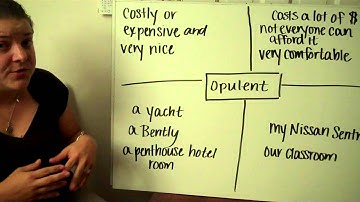 Costly or
expensive and
very nice
Costs a lot of $
not everyone can
afford it
very comfortable
Opulent
a yacht
a Bently
a penthouse hotel
room
my Nissan Sentr
our classroom